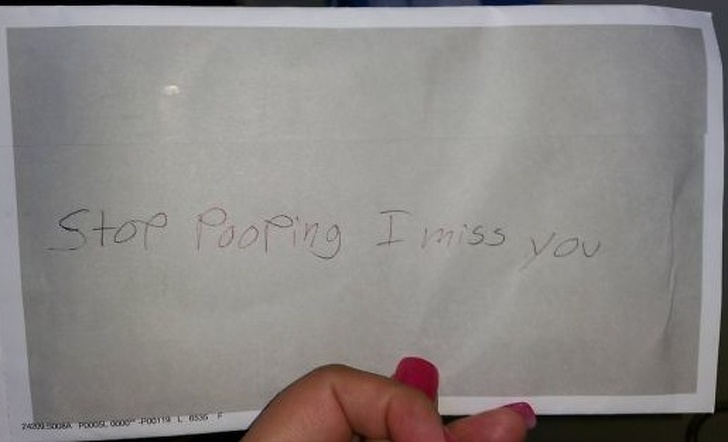 Stop Pooping I miss you
24209.5008A P0005L 0000** -P00119 L 6535 F